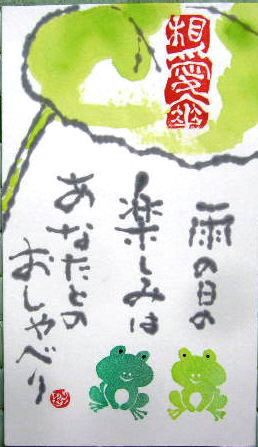 相愛傘
雨の日の
楽しみは
あなたとの
おしゃべり